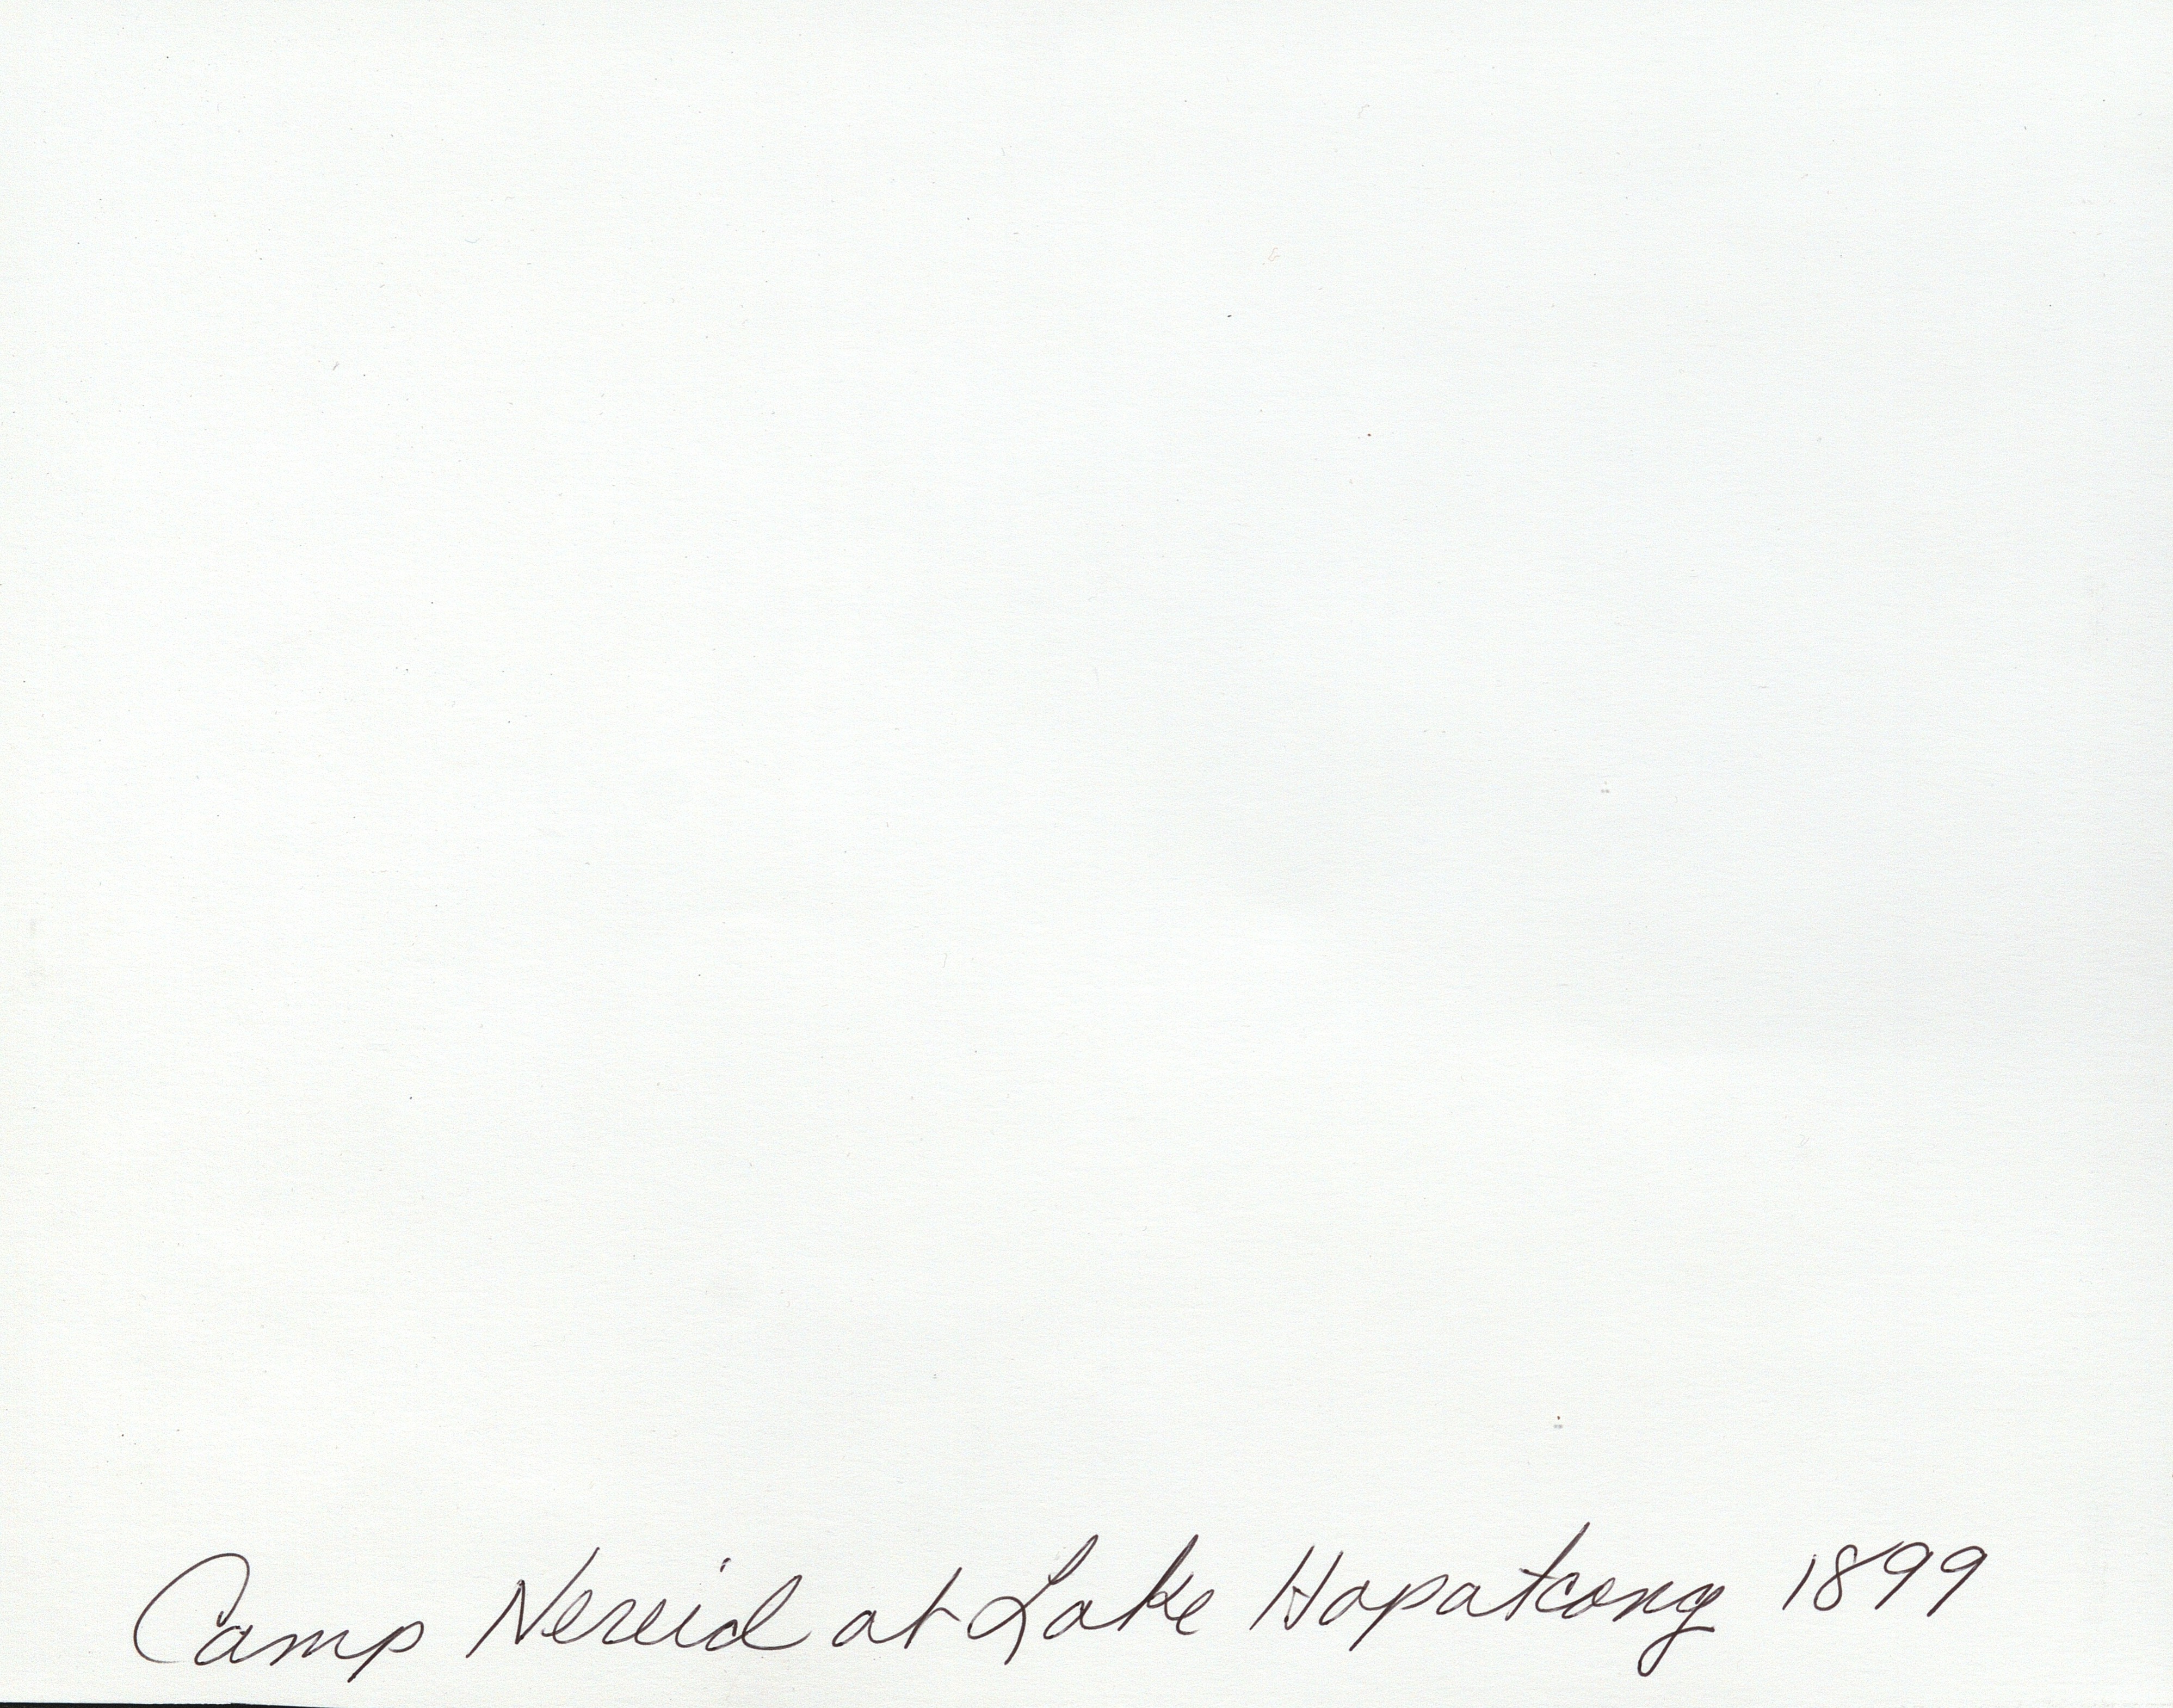 Camp Nereid at Lake Hopatcong 1899